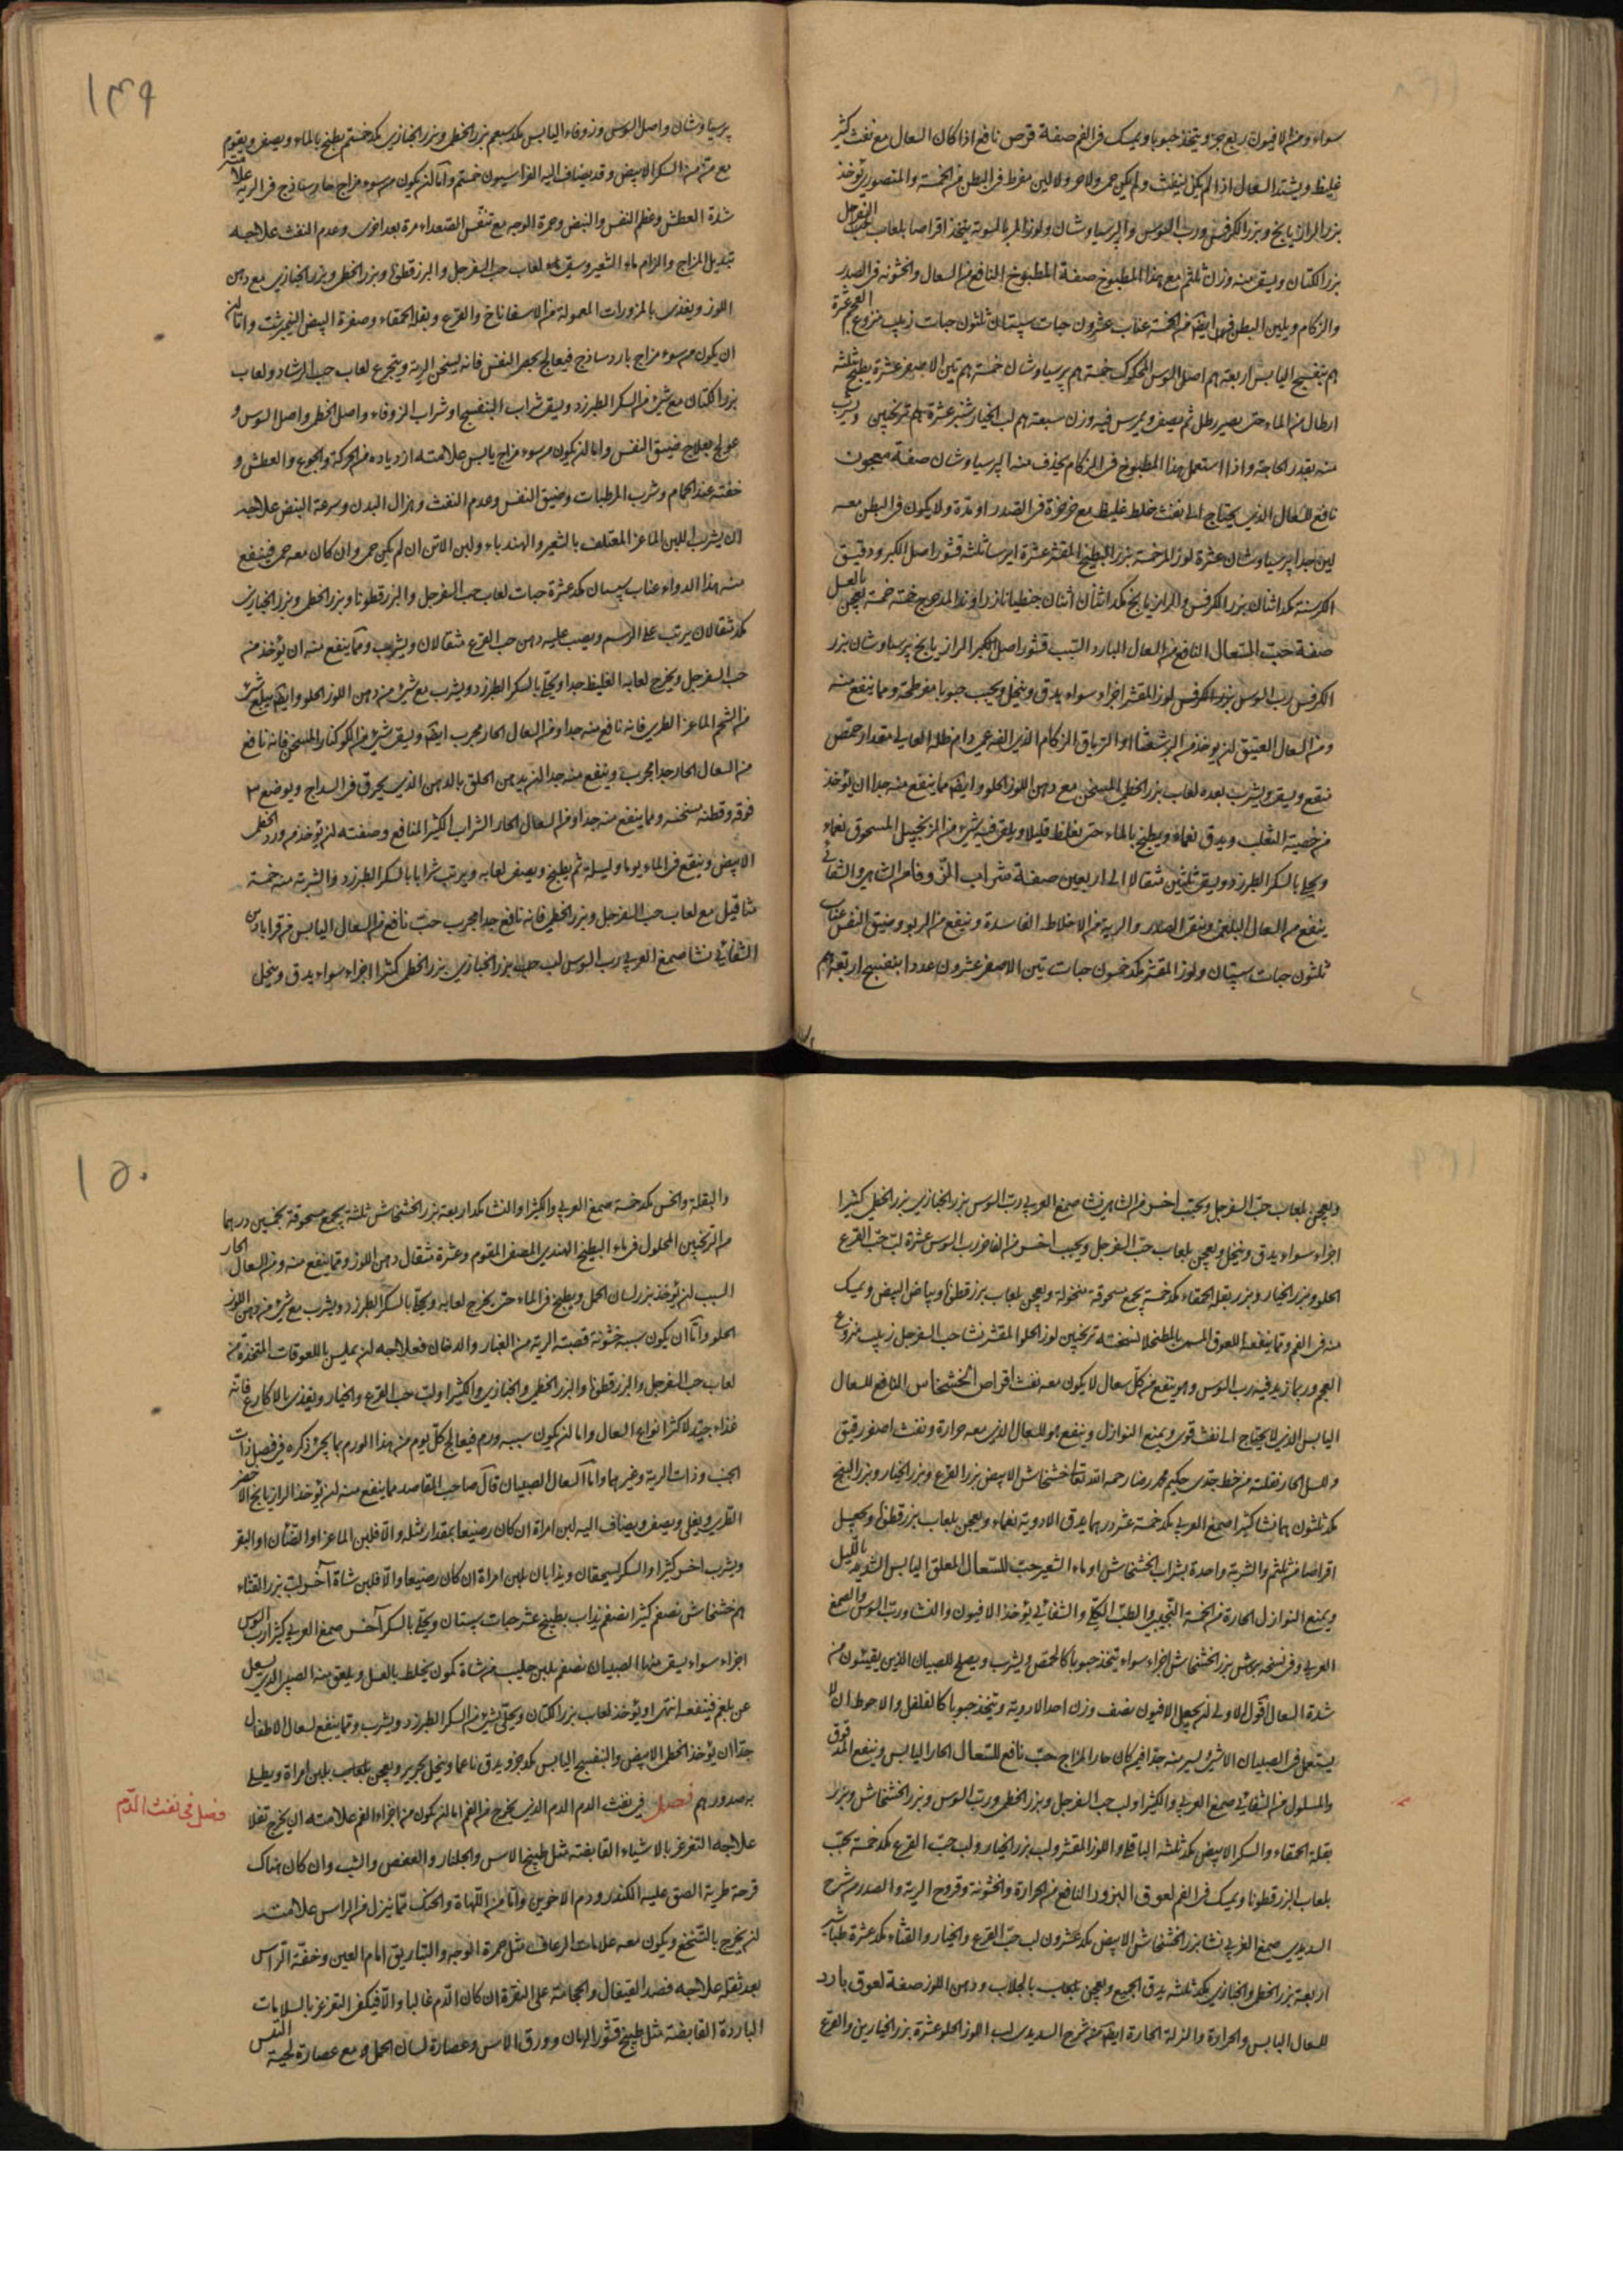 سواء ومن الافيون ربع جزء ويتخذ حبوبا ويمسك فى الفم صفة قرص نافع اذا كان السعال مع نفث كثير
غليظ ويشتد السعال اذا لم يكن لينفث ولم يكن حمى ولا حر ولا لين مفرط فى البطن من الخمسة والمنصورى يؤخذ
بزر الرازيانج وبزر الكرفس ورب السوس والپرسياوشان ولوز المر بالسوية يتخذ اقراصا بلعاب حب السفرجل
بزر الكتان ويسقى منه وزن مع هذا المطبوخ صفة المطبوخ النافع من السعال والخشونة فى الصدر
والزكام ويلين البطن من الخمسة عناب عشرون حبات سپستان ثلثون حبات زبيب منزوع العجم عشرة
بنفسج اليابس اربعة اصل السوس المحكوك خمسة پرسياوشان خمسة تين الاصفر عشرة يطبخ بثلثة
ارطال من الماء حتى يصير رطل ثم يصفى ويمرس فيه وزن سبعة لب الخيارشنبر عشرة ترنجبين ويشرب
منه بقدر الحاجة واذا استعمل هذا المطبوخ فى الزكام يحذف منه الپرسياوشان صفة معجون
نافع للسعال الذى يحتاج الى نفث خلط غليظ مع خرخرة فى الصدر او مدة ولا يكون فى البطن معه
لين جدا پرسياوشان عشرة لوز المر خمسة بزر البطيخ المقشر عشرة ايرسا ثلثة قشور اصل الكبر ودقيق
الكرسنة مكد اثنان بزر الكرفس والرازيانج مكد اثنان اثنان جنطيانا زراوند المدحرج خمسة خمسة يعجن بالعسل
صفة حب السعال النافع من السعال البارد السبب قشور اصل الكبر الرازيانج پرسياوشان بزر
الكرفس رب السوس بزر الكرفس لوز المقشر اجزاء سواء يدق وينخل ويحبب حبوبا مفرطحة ومما ينفع منه
ومن السعال العتيق ان يؤخذ من البرشعثا او الترياق الزكام الذى الفه عمى دام ظله العالى مقدار حمص
ينقع ويسقى ويشرب بعده لعاب بزر الخطمى المسخن مع دهن اللوز الحلو وايضا مما ينفع منه جدا ان يؤخذ
من خصية الثعلب ويدق نعماء ويطبخ بالماء حتى يغلظ قليلا ويلقى فيه شئ من الزنجبيل المسحوق نعماء
ويحلى بالسكر الطبرزد ويسقى ثلثين مثقالا الى اربعين صفة شراب الزوفا من الشاهى والشفائى
ينفع من السعال البلغمى وينقى الصدر والرية من الاخلاط الفاسدة وينفع من الربو وضيق النفس عناب
ثلثون حبات سپستان ولوز المقشر مكد خمسون حبات تين الاصفر عشرون عددا بنفسج اربعة
١٤٩
پرسياوشان واصل السوس وزوفاء اليابس مكد سبع بزر الخطمى وبزر الخبازى مكد خمسة يطبخ بالماء ويصفى ويقوم
مع من السكر الابيض وقد يضاف اليه الفراسيون خمسة واما ان يكون من سوء مزاج حار ساذج فى الرية علامته
شدة العطش وعظم النفس والنبض وحمرة الوجه مع تنفس الصعداء مرة بعد اخرى وعدم النفث علاجه
تبديل المزاج والزام ماء الشعير وسقى لعاب حب السفرجل والبزرقطونا وبزر الخطمى وبزر الخبازى مع دهن
اللوز ويغذى بالمزورات المعمولة من الاسفاناخ والقرع وبقلة الحمقاء وصفرة البيض النيمبرشت واما ان
ان يكون من سوء مزاج بارد ساذج فيعالج بحصر النفس فانه يسخن الرية ويتجرع لعاب حب الرشاد ولعاب
بزر الكتان مع شئ من السكر الطبرزد ويسقى شراب البنفسج او شراب الزوفاء واصل الخطمى واصل السوس و
عولج بعلاج ضيق النفس واما ان يكون من سوء مزاج يابس علامته ازدياده من الحركة والجوع والعطش و
خفته عند الحمام وشرب المرطبات وضيق النفس وعدم النفث وهزال البدن وسرعة النبض علاجه
ان يشرب اللبن الماعز المعتلف بالشعير والهندباء ولبن الاتن ان لم يكن حمى وان كان معه حمى فينفع
منه هذا الدواء عناب سپستان مكد عشرة حبات لعاب حب السفرجل والبزرقطونا وبزر الخطمى وبزر الخبازى
مكد مثقالان يرتب على الرسم ويصب عليه دهن حب القرع مثقالان ويشرب ومما ينفع منه ان يؤخذ منه
حب السفرجل ويخرج لعابه الغليظ جدا ويحلى بالسكر الطبرزد ويشرب مع شئ من دهن اللوز الحلو وايضا يبلع شئ
من الشحم الماعز الطرى فانه نافع منه جدا ومن السعال الحار مجرب ايضا ويسقى شئ من الكوكنار المسخن فانه نافع
من السعال الحار جدا مجرب وينفع منه جدا ان يدهن الحلق بالدهن الذى يحرق فى السراج ويوضع
فوقه وقطنة مسخنة ومما ينفع منه جدا ومن السعال الحار الشراب الكثير المنافع وصفته ان يؤخذ من ورد الخطمى
الابيض وينقع فى الماء يوما وليلة ثم يطبخ ويصفى لعابه ويرتب شرابا بالسكر الطبرزد والشربة منه خمسة
مثاقيل مع لعاب حب السفرجل وبزر الخطمى فانه نافع جدا مجرب حب نافع من السعال اليابس من قرابادين
الشفائى نشا صمغ العربى رب السوس لب حب بزر الخبازى بزر الخطمى كثيرا اجزاء سواء يدق وينخل
ويعجن بلعاب حب السفرجل ويحبب اخر من الشاهى نشا صمغ العربى رب السوس بزر الخبازى بزر الخطمى كثيرا
اجزاء سواء يدق وينخل ويعجن بلعاب حب السفرجل ويحبب اخر من الفاخر رب السوس عشرة لب حب القرع
الحلو وبزر الخيار وبزر بقلة الحمقاء مكد خمسة يجمع مسحوقة منخولة ويعجن بلعاب بزرقطونا وبياض البيض ويمسك
منه فى الفم ومما ينفعه اللعوق المسمى ترنجبين لوز الحلو المقشر نشا حب السفرجل زبيب منزوع
العجم وربما زيد فيه رب السوس وهو ينفع من كل سعال لا يكون معه نفث اقراص الخشخاش النافع للسعال
اليابس الذى لا يحتاج الى نفث قوى ويمنع النوازل وينفع هو للسعال الذى معه حرارة ونفث اصفر رقيق
والسل الحار نقلته من خط جدى حكيم محمد رضا رحمه الله تعالى خشخاش الابيض بزر القرع وبزر الخيار وبزر البنج
مكد ثلثون درهما نشا كثيرا صمغ العربى مكد خمسة عشر درهما يدق الادوية نعماء ويعجن بلعاب بزرقطونا ويجعل
اقراصا والشربة واحدة بشراب الخشخاش او ماء الشعير حب للسعال المقلق اليابس الشديد بالليل
ويمنع النوازل الحارة من الخمسة التجيبى والطب الكلى والشفائى يؤخذ الافيون والنشا ورب السوس والصمغ
العربى وفى نسخة بزر الخشخاش اجزاء سواء يتخذ حبوبا كالحمص ويشرب ويصلح للصبيان الذين يقيئون من
شدة السعال اقول الاولى ان يجعل الافيون نصف وزن احد الادوية ويتخذ حبوبا كالفلفل والاحوط ان لا
يستعمل فى الصبيان الا شئ يسير منه جدا فيمن كان حار المزاج حب نافع للسعال الحار اليابس وينفع المدقوق
والمسلول من الشفائى صمغ العربى والكثيرا ولب حب السفرجل وبزر الخطمى ورب السوس وبزر الخشخاش وبزر
بقلة الحمقاء والسكر الابيض مكد ثلثة الباقلى واللوز المقشر ولب بزر الخيار ولب حب القرع مكد خمسة يحبب
بلعاب البزرقطونا ويمسك فى الفم لعوق البزور النافع من الحرارة والخشونة وقروح الرية والصدر من شرح
السديدى صمغ العربى نشا بزر الخشخاش الابيض مكد عشرون لب حب القرع والخيار والقثاء مكد عشرة طباشير
اربعة بزر الخطمى والخبازى مكد ثلثة يدق الجميع ويعجن بالجلاب ودهن اللوز صفة لعوق بارد
للسعال اليابس والحرارة والنزلة الحارة ايضا من شرح السديدى لب اللوز الحلو عشرة بزر الخيارين والقرع
١٥٠
والبقلة والخس مكد خمسة صمغ العربى والكثيرا والنشا مكد اربعة بزر الخشخاش ثلثة يجمع مسحوقة بخمسين درهما
من الترنجبين المحلول فى ماء البطيخ الهندى المصفى المقوم وعشرة مثقال دهن اللوز ومما ينفع منه ومن السعال الحار
السبب ان يؤخذ بزر لسان الحمل ويطبخ فى الماء حتى يخرج لعابه ويحلى بالسكر الطبرزد ويشرب مع شئ من دهن اللوز
الحلو واما ان يكون سببه خشونة قصبة الرية من الغبار والدخان فعلاجه ان يملس باللعوقات المتخذة من
لعاب حب السفرجل والبزرقطونا والبزر الخطمى والخبازى والكثيرا ولب حب القرع والخيار ويغذى بالاكارع فانه
غذاء جيد لاكثر انواع السعال واما ان يكون سببه ورم فيعالج كل يوم من هذا الورم بما يجئ ذكره فى فصل ذات
الجنب وذات الرية وغيرهما واما السعال الصبيان قال صاحب المقاصد مما ينفع منه ان يؤخذ الرازيانج الاخضر
الطرى ويغلى ويصفى ويضاف اليه لبن امراة ان كان رضيعا بمقدار مثله والا فلبن الماعز او الضئان او البقر
ويشرب اخر كثيرا والسكر يسحقان ويذابان بلبن امراة ان كان رضيعا والا فلبن شاة آخر لب بزر القثاء
خشخاش نصف كثيرا نصف يذاب بطبيخ عشر حبات سپستان ويحلى بالسكر آخر صمغ العربى كثيرا رب السوس
اجزاء سواء يسقى منها الصبيان نصف بلبن حليب من شاة كمون يخلط بالعسل ويلعق منه الصبى الذى يسعل
عن بلغم فينفعه انتهى او يؤخذ لعاب بزر الكتان ويحلى بشئ من السكر الطبرزد ويشرب ومما ينفع لسعال الاطفال
جدا ان يؤخذ الخطمى الابيض والبنفسج اليابس مكد جزء ويدق ناعما وينخل بحرير ويعجن بلعاب بلبن امراة ويطلى
به صدورهم فصل فى نفث الدم الدم الذى يخرج من الفم اما ان يكون من اجزاء الفم علامته ان يخرج تفلا
فصل فى نفث الدم
علاجه التغرغر بالاشياء القابضة مثل طبيخ الاس والجلنار والعفص والشب وان كان هناك
قرحة طرية الصق عليه الكندر ودم الاخوين واما من اللهاة والحنك مما ينزل من الراس علامته
ان يخرج بالتنخع ويكون معه علامات الرعاف مثل حمرة الوجه والتباريق امام العين وخفة الراس
بعد ثقله علاجه فصد القيفال والحجامة على النقرة ان كان الدم غالبا والا فيكفى التغرغر بالسلاقات
الباردة القابضة مثل طبيخ قشور الرمان وورق الاس وعصارة لسان الحمل ومع عصارة لحية التيس